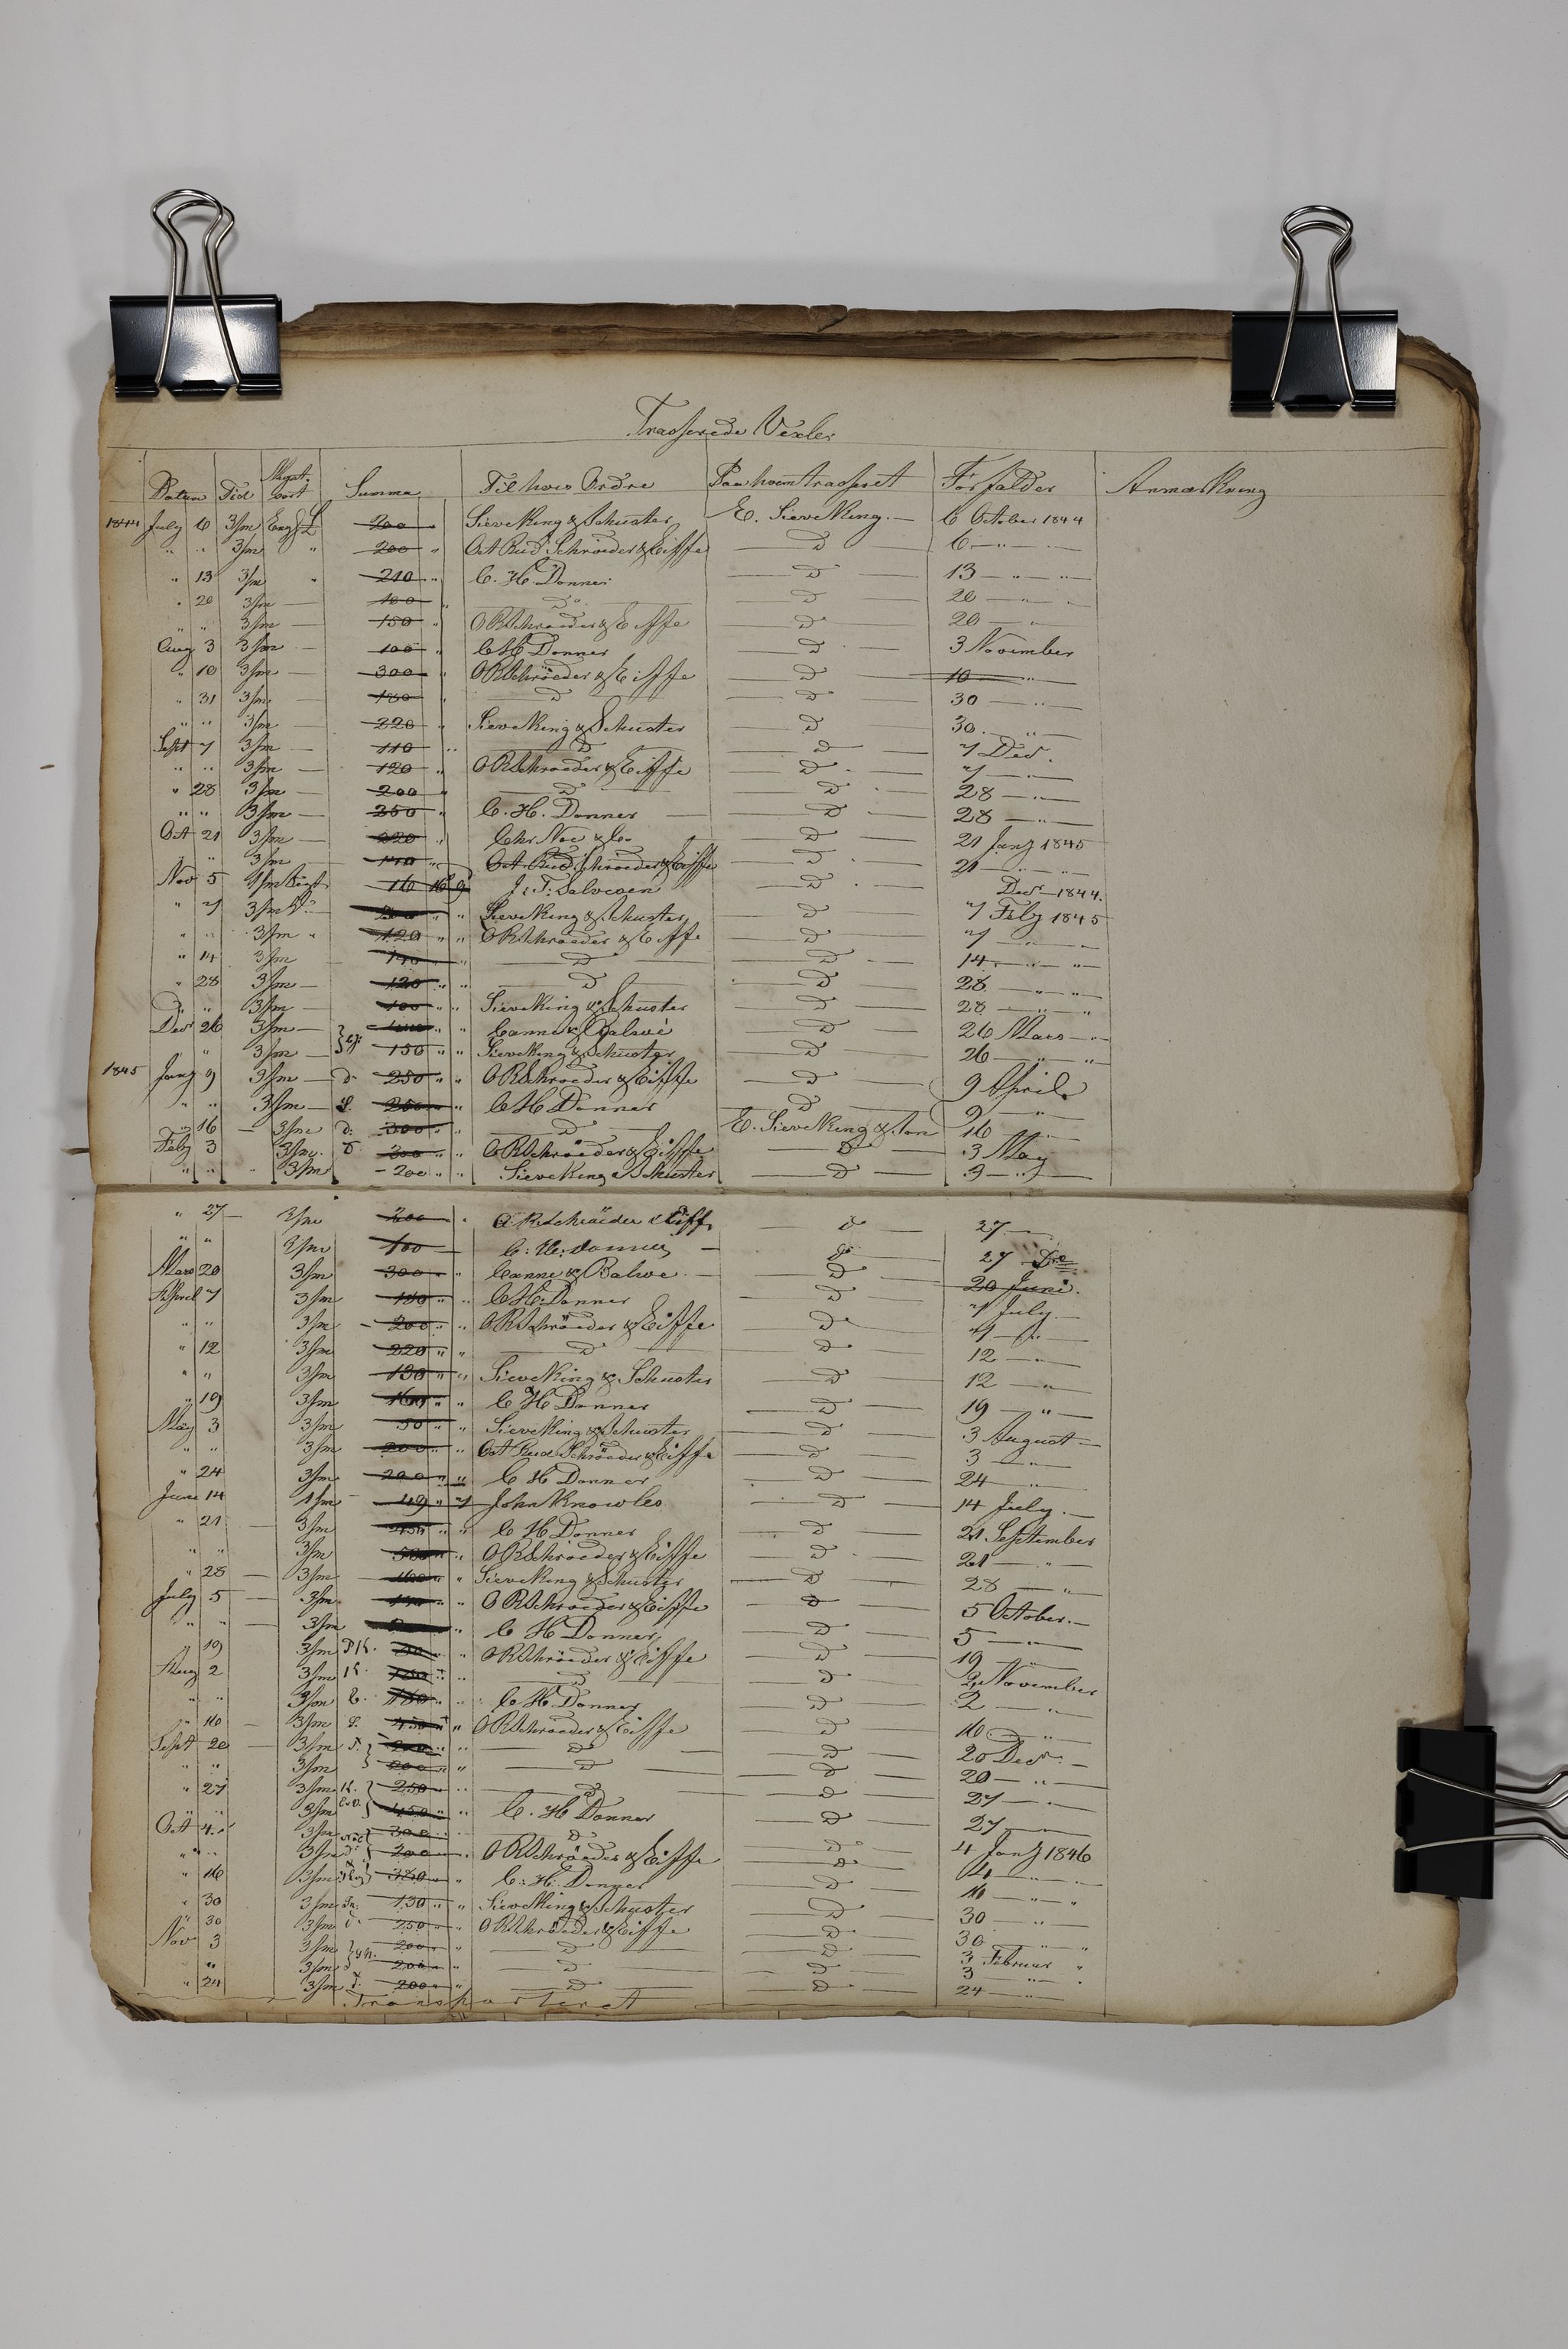 Trasserede Vexler
Datum Tid Mynt-sort Summa Til hvis Ordre Paa hvem trasseret Forfalder Anmærkning
1844 July 6 3/m Engl £ 200 " Sieveking & Schuster E. Sieveking. — 6 October 1844
" " 3/m " 200 " Oct Rud Schröeder & Eiffe — D — 6 — " —
" 13 3/m " 210 " C. H. Donner — D — 13 — " — " —
" 20 3/m — 100 " — Do — — D — 20 — " —
" " 3/m — 150 " O R Schroeder & Eiffe — D — 20 — "
Aug 3 3/m — 100 " C H Donner — D — 3 November
" 10 3/m — 300 " O R Schröeder & Eiffe — D — 10 — " —
" 31 3/m — 180 " — D — — D — 30 — " —
" " 3/m — 220 " Sieveking & Schuster — D — 30 — " —
Sept 7 3/m — 110 " — D — — D — 7 Decr.
" " 3/m — 120 " O R Schroeder & Eiffe — D — 7 — " —
" 28 3/m — 200 " — D — — D — 28 — " —
" " 3/m — 250 " C. H. Donner — — D — 28 — " —
Oct 21 3/m — 220 " Chr Noe & Co — D — 21 Jany 1845
" 3/m — " Oct Rud Schröeder & Eiffe — D — 21 — " — " —
Nov 5 1/m Sigt 16 16 9 J: T: Salvesen — D — Decr 1844.
" 7 3/m " " Sieveking & Schuster — D — 7 Feby 1845
" " 3/m " 120 " " O R Schroeder & Eiffe — D — 7 — " —
" 14 3/m — 140 " — D — — D — 14 — " — "
" 28 3/m — 120 " " — D — — D — 28 — " — "
" " 3/m — 100 " " Sieveking & Schuster — D — 28 — " — "
Decr 26 3/m — " " Canne & Balwé — D — 26 Mars — "
" 3/m — 150 " " Sieveking & Schuster — D — 26 — " — "
1845 Jany 9 3/m — d. 250 " " O R Schroeder & Eiffe — D — 9 April.
" " 3/m — 250 " " C H Donner — D — 9 — "
" 16 — 3/m d: 300 " " — D — E. Sieveking & Son 16 — "
Feby 3 3/m. 300 " " O R Schröeder & Eiffe — D — 3 May
" " 3/m - 200 " " Sieveking & Schuster — D — 3 — " —
" 27 — 3/m 200 " O. R. Schröeder & Eiffe — d — 27 —
" " 3/m 100 C: H: Donner — — do — 27 Do
Mars 20 3/m 300 " Canne & Balwe. — — D — 20 Juni.
April 7 3/m " " C H: Donner — D — 7 July —
" " 3/m - 200 " " O R Schröeder & Eiffe — D — 7 — " —
" 12 3/m 220 " " — D — — D — 12 — " —
" " 3/m 130 " " Sieveking & Schuster — D — 12 — " —
" 19 3/m 160 " " C H Donner — D — 19 — " —
May 3 3/m 50 " " Sieveking & Schuster — D — 3 August —
" " 3/m 200 " " Oct Rud Schröeder & Eiffe — D — 3 — "
" 24 3/m 200 " " C H Donner — D — 24 — " —
June 14 1/m — 49 " 7 John Knowles — D — 14 July. —
" 21 — 3/m " " C H Donner — D — 21 September
" " 3/m " " O R Schroeder & Eiffe — D — 21 — "
" 28 — 3/m " " Sieveking & Schuster — D — 28 — "
July 5 — 3/m " " O R Schroeder & Eiffe — D — 5 October. —
" " — 3/m " C H Donner, — D — 5 — "
" 19 3/m " O R Schröeder & Eiffe — D — 19 — "
Aug 2 3/m K. " " — D — — D — 2 November
" " 3/m " C H Donner — D — 2 — "
" 16 — 3/m " " O R Schroeder & Eiffe — D — 16 — "
Sept 20 — 3/m " " — D — — D — 20 Decr. —
" " 3/m " " — D — — D — 20 — " —
" 27 3/m K. 250 " " — D — — D — 27 — " —
" " 3/m " " C. H Donner — D — 27 — " —
Oct 4 " 3/m 300 " " — D — — D — 4 Jany 1846
" " 3/m 200 " O R Schröeder & Eiffe — D — 4 — " —
" 16 3/m " C: H: Donner — D — 16 — " — "
" 30 3/m 130 " " Sieveking & Schuster — D — 30 — " —
" 30 3/m 250 " " O R Schröeder & Eiffe — D — 30 — " — "
Nov 3 3/m 200 " " — D — — D — 3 Februar "
" " 3/m 200 " " — D — — D — 3 — " — "
" 24 3/m 200 " " — D — — D — 24 — " —
Transporteret